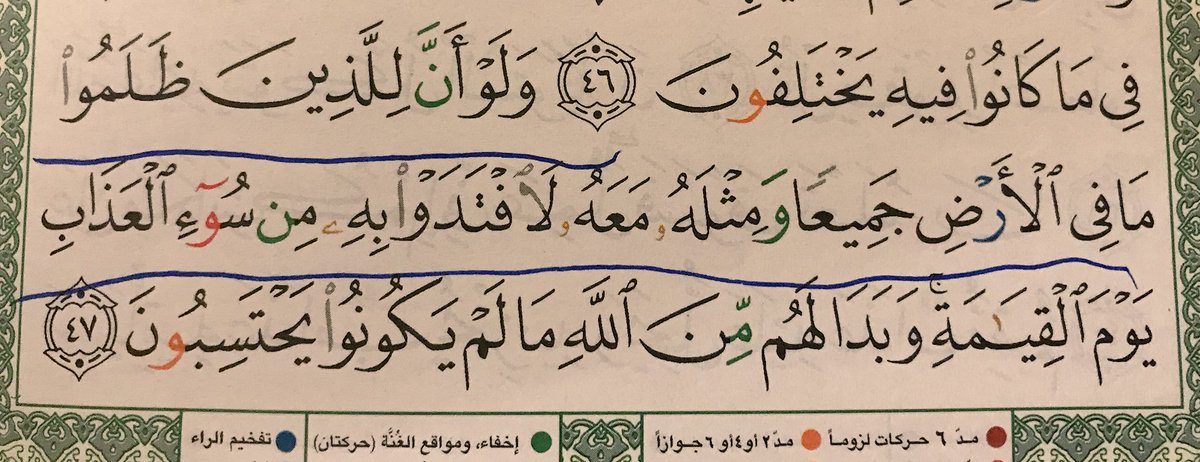 فِى مَا كَانُوا۟ فِيهِ يَخْتَلِفُونَ ٤٦ وَلَوْ أَنَّ لِلَّذِينَ ظَلَمُوا۟
مَا فِى ٱلْأَرْضِ جَمِيعًا وَمِثْلَهُۥ مَعَهُۥ لَٱفْتَدَوْا۟ بِهِۦ مِن سُوٓءِ ٱلْعَذَابِ
يَوْمَ ٱلْقِيَـٰمَةِ ۚ وَبَدَا لَهُم مِّنَ ٱللَّهِ مَا لَمْ يَكُونُوا۟ يَحْتَسِبُونَ ٤٧
مدّ ٦ حركات لزوماً مدّ ٢ أو ٤ أو ٦ جوازاً إخفاء، ومواقع الغُنَّة (حركتان) تفخيم الراء